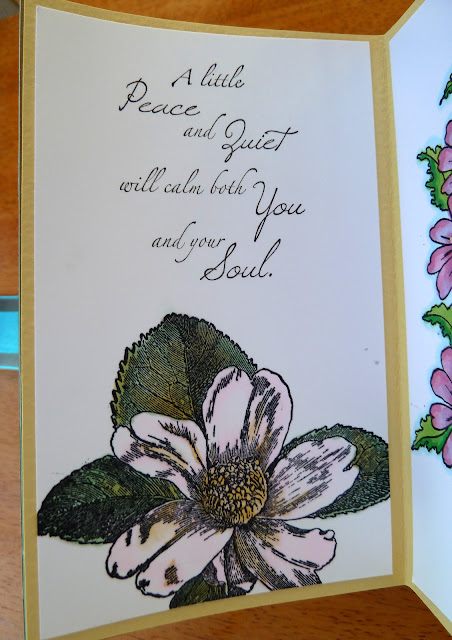 A little
Peace
and Quiet
will calm both
You
and your
Soul.